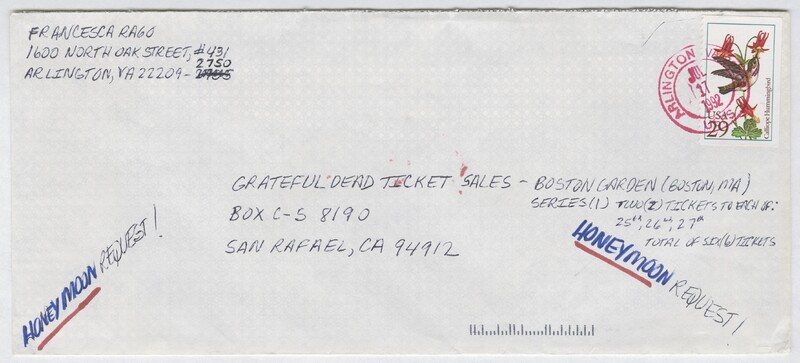 FRANCESCA RAGO
1600 NORTH OAK STREET, #431
2750
ARLINGTON, VA 22209-
ARLINGTON VA
JUL
17
1992
USPS
USA
29
Calliope Hummingbird
GRATEFUL DEAD TICKET SALES - BOSTON GARDEN (BOSTON, MA)
SERIES (1) TWO (2) TICKETS TO EACH OF:
BOX C-S 8190
25th, 26th, 27th
SAN RAFAEL, CA 94912
TOTAL OF SIX (6) TICKETS
HONEYMOON REQUEST!
HONEYMOON REQUEST!